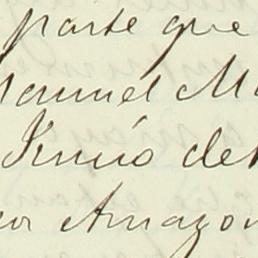 parte que
Manuel M
Junio de
Amazon